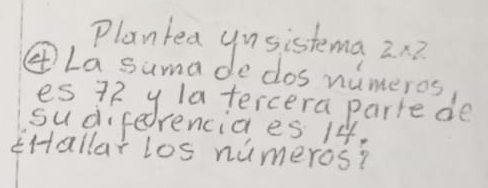 Plantea un sistema 2x2
④ La suma de dos números,
es 72 y la tercera parte de
su diferencia es 14.
¿Hallar los números?